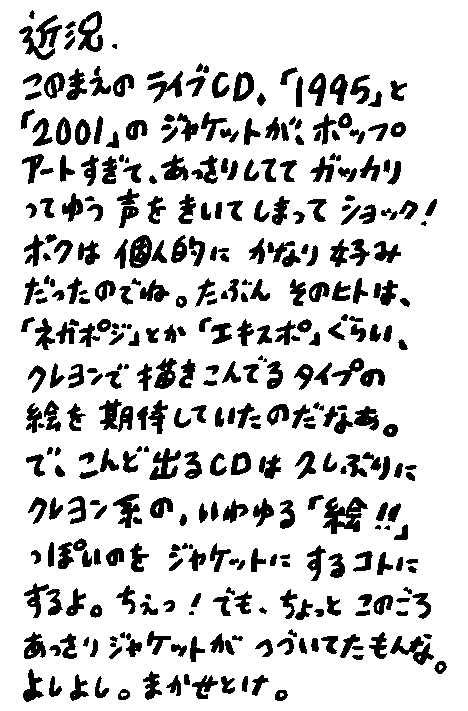 近況.
このまえの ライブCD、「1995」と
「2001」の ジャケットが、ポップ
アートすぎて、あっさりしてて ガッカリ
ってゆう 声を きいてしまって ショック!
ボクは 個人的に かなり 好み
だったのでね。たぶん そのヒトは、
「ネガポジ」とか「エキスポ」ぐらい、
クレヨンで 描きこんでる タイプの
絵を 期待していたのだなぁ。
で、こんど 出る CDは 久しぶりに
クレヨン系の、いわゆる「絵!!」
っぽいのを ジャケットに するコトに
するよ。ちぇっ! でも、ちょっと このごろ
あっさりジャケットが つづいてたもんな。
よしよし。まかせとけ。